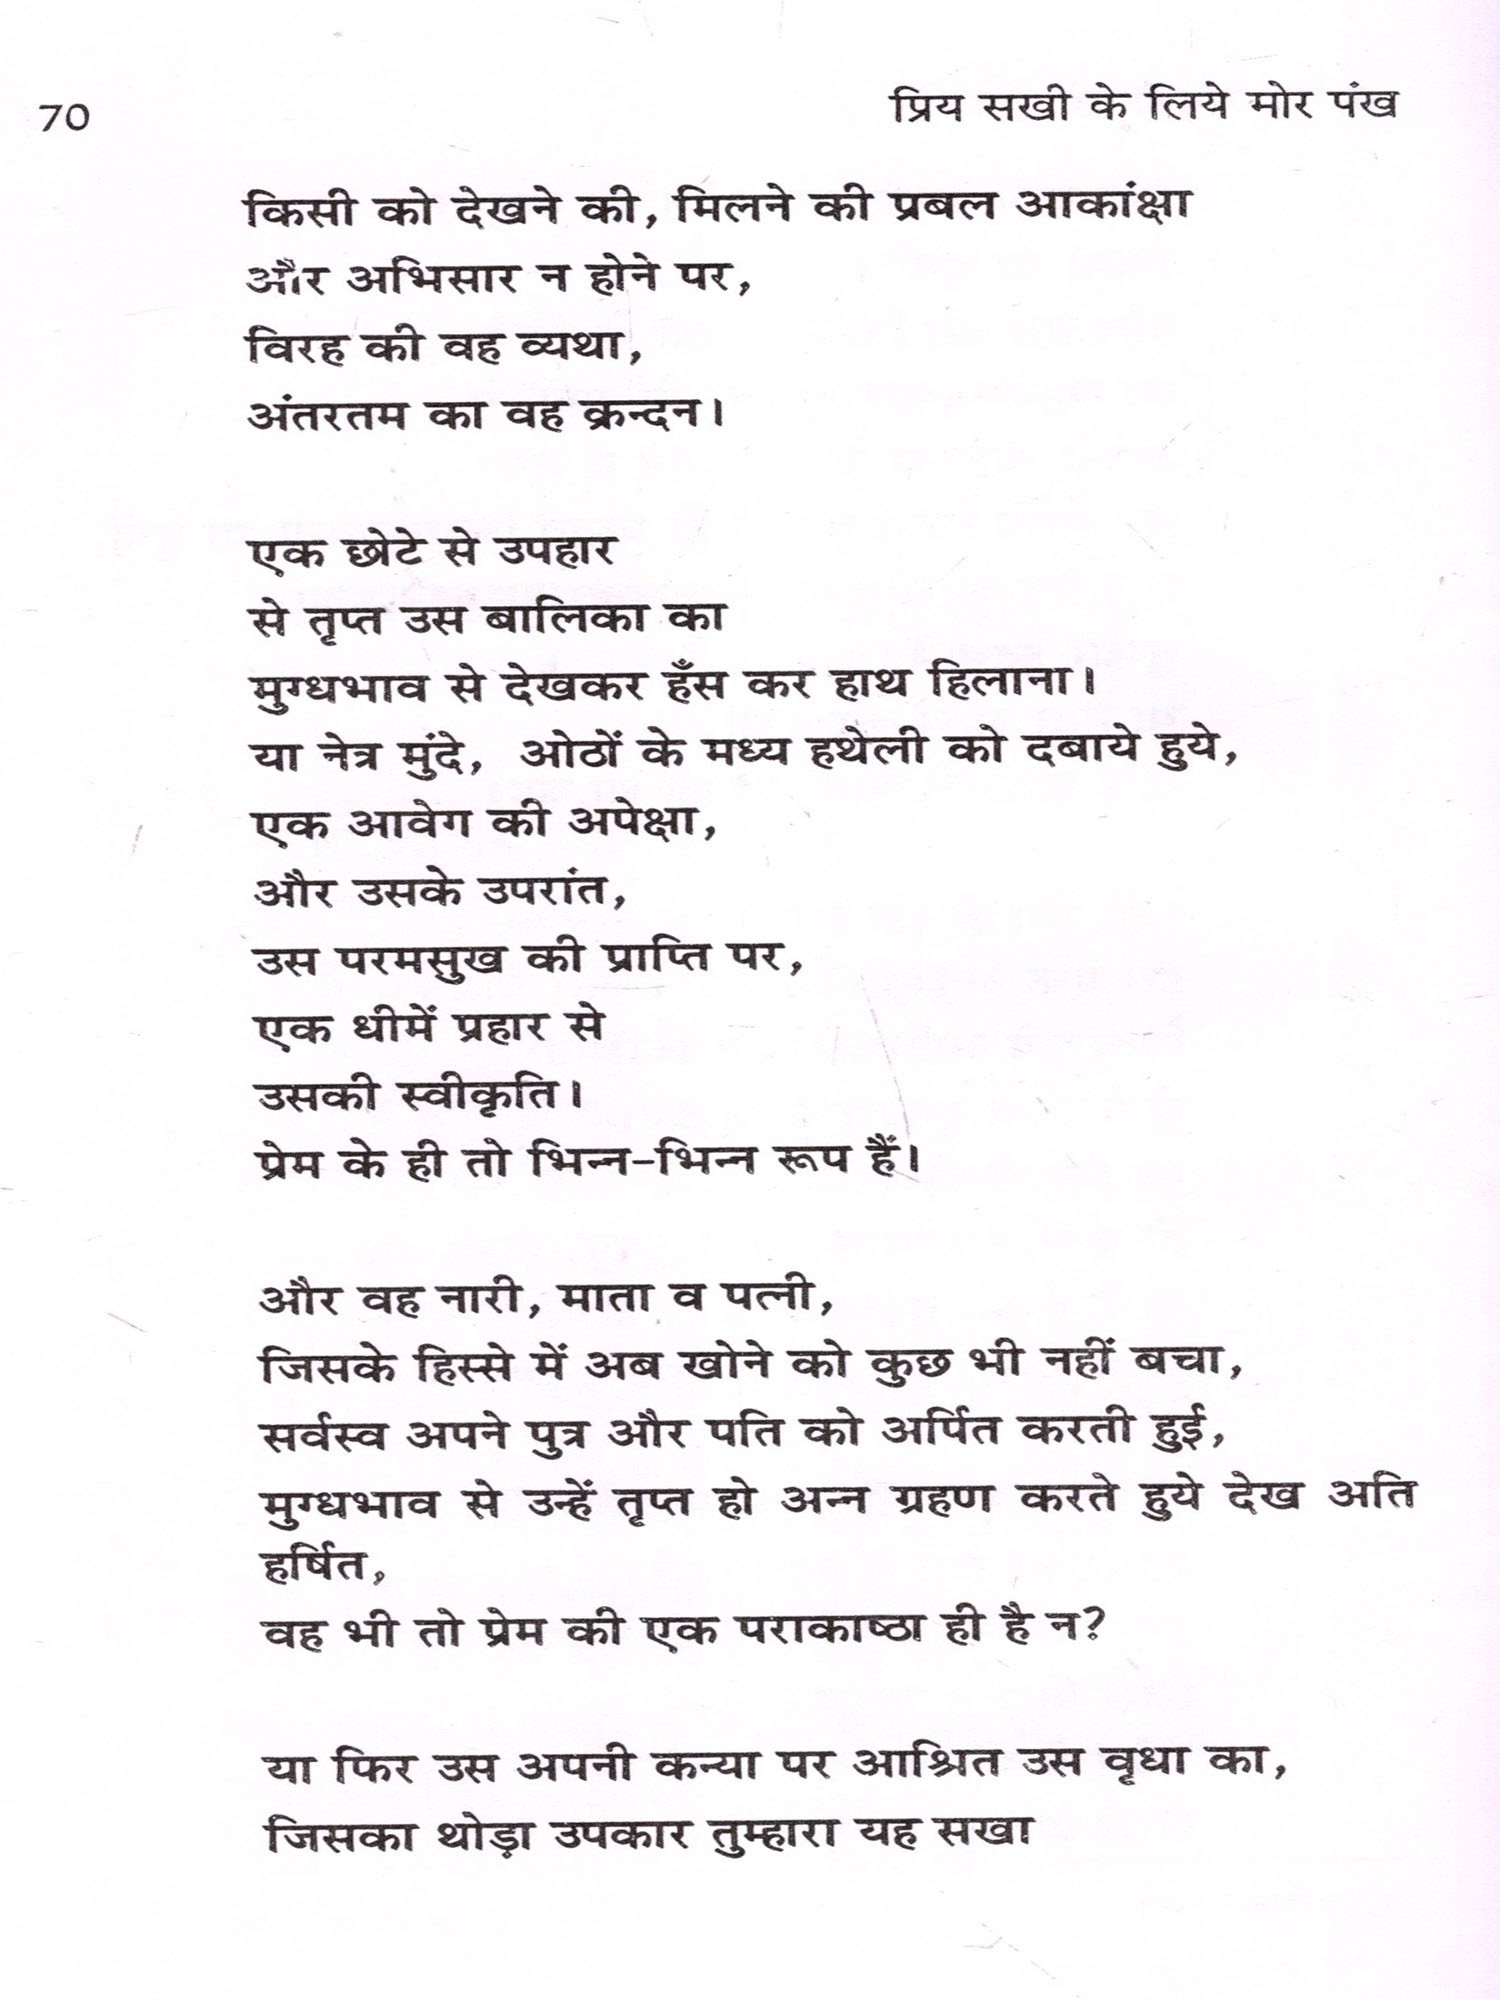 70
प्रिय सखी के लिये मोर पंख
किसी को देखने की, मिलने की प्रबल आकांक्षा
और अभिसार न होने पर,
विरह की वह व्यथा,
अंतरतम का वह क्रन्दन।
एक छोटे से उपहार
से तृप्त उस बालिका का
मुग्धभाव से देखकर हँस कर हाथ हिलाना।
या नेत्र मुंदे, ओठों के मध्य हथेली को दबाये हुये,
एक आवेग की अपेक्षा,
और उसके उपरांत,
उस परमसुख की प्राप्ति पर,
एक धीमें प्रहार से
उसकी स्वीकृति।
प्रेम के ही तो भिन्न-भिन्न रूप हैं।
और वह नारी, माता व पत्नी,
जिसके हिस्से में अब खोने को कुछ भी नहीं बचा,
सर्वस्व अपने पुत्र और पति को अर्पित करती हुई,
मुग्धभाव से उन्हें तृप्त हो अन्न ग्रहण करते हुये देख अति
हर्षित,
वह भी तो प्रेम की एक पराकाष्ठा ही है न?
या फिर उस अपनी कन्या पर आश्रित उस वृधा का,
जिसका थोड़ा उपकार तुम्हारा यह सखा